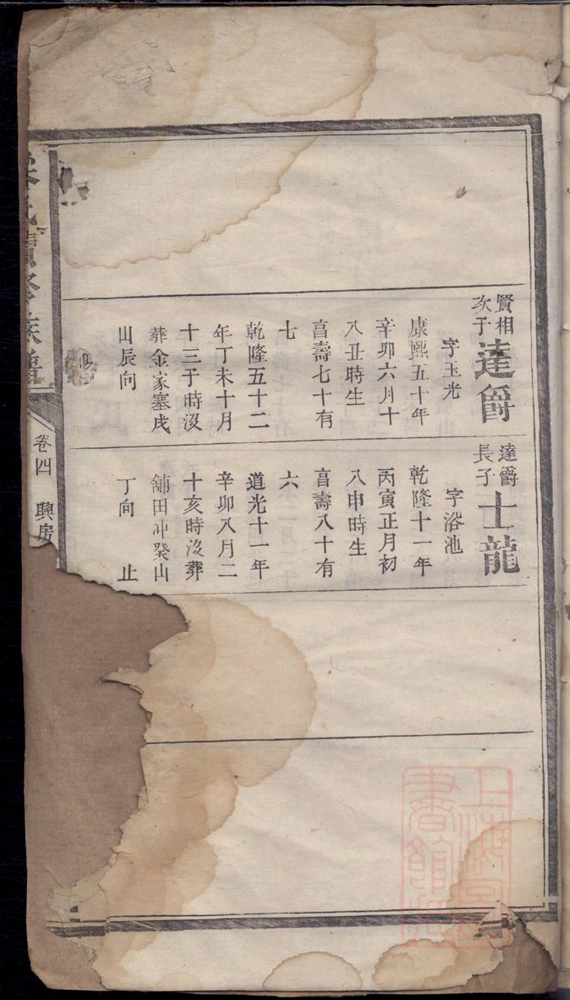 賢相
次子
達爵
字玉光
康熙五十年
辛卯六月十
八丑時生
享壽七十有
七
乾隆五十二
年丁未十月
十三子時沒
葬金家塞戌
山辰向
達爵
長子
士龍
字浴池
乾隆十一年
丙寅正月初
八申時生
享壽八十有
六
道光十一年
辛卯八月二
十亥時沒葬
舖田冲癸山
丁向 止
氏續修族譜
卷四 興房
上海圖書館藏